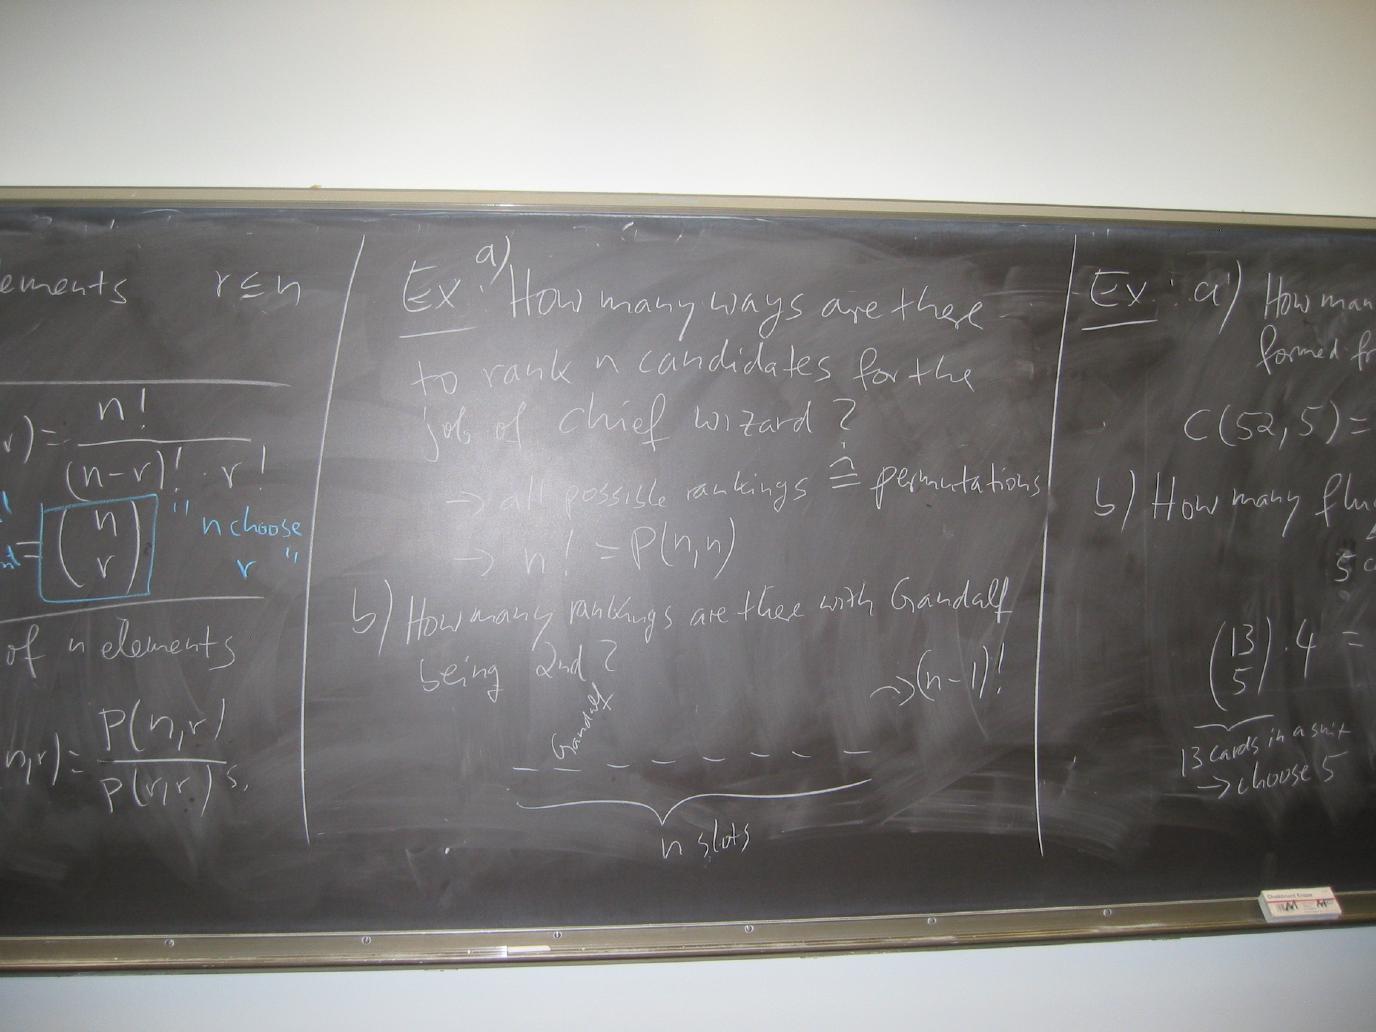 ements r ≤ n
r) = n! / (n-r)! · r!
= (n r) " n choose
r "
of n elements
n,r) = P(n,r) / P(r,r)
Ex: a) How many ways are there
to rank n candidates for the
job of chief wizard?
→ all possible rankings ≙ permutations
→ n! = P(n,n)
b) How many rankings are thee with Gandalf
being 2nd?
→ (n-1)!
Gandalf
n slots
Ex: a) How man
formed fr
C(52,5) =
b) How many flu
5 c
(13 5) · 4 =
13 cards in a suit
→ choose 5
Chalkboard Eraser